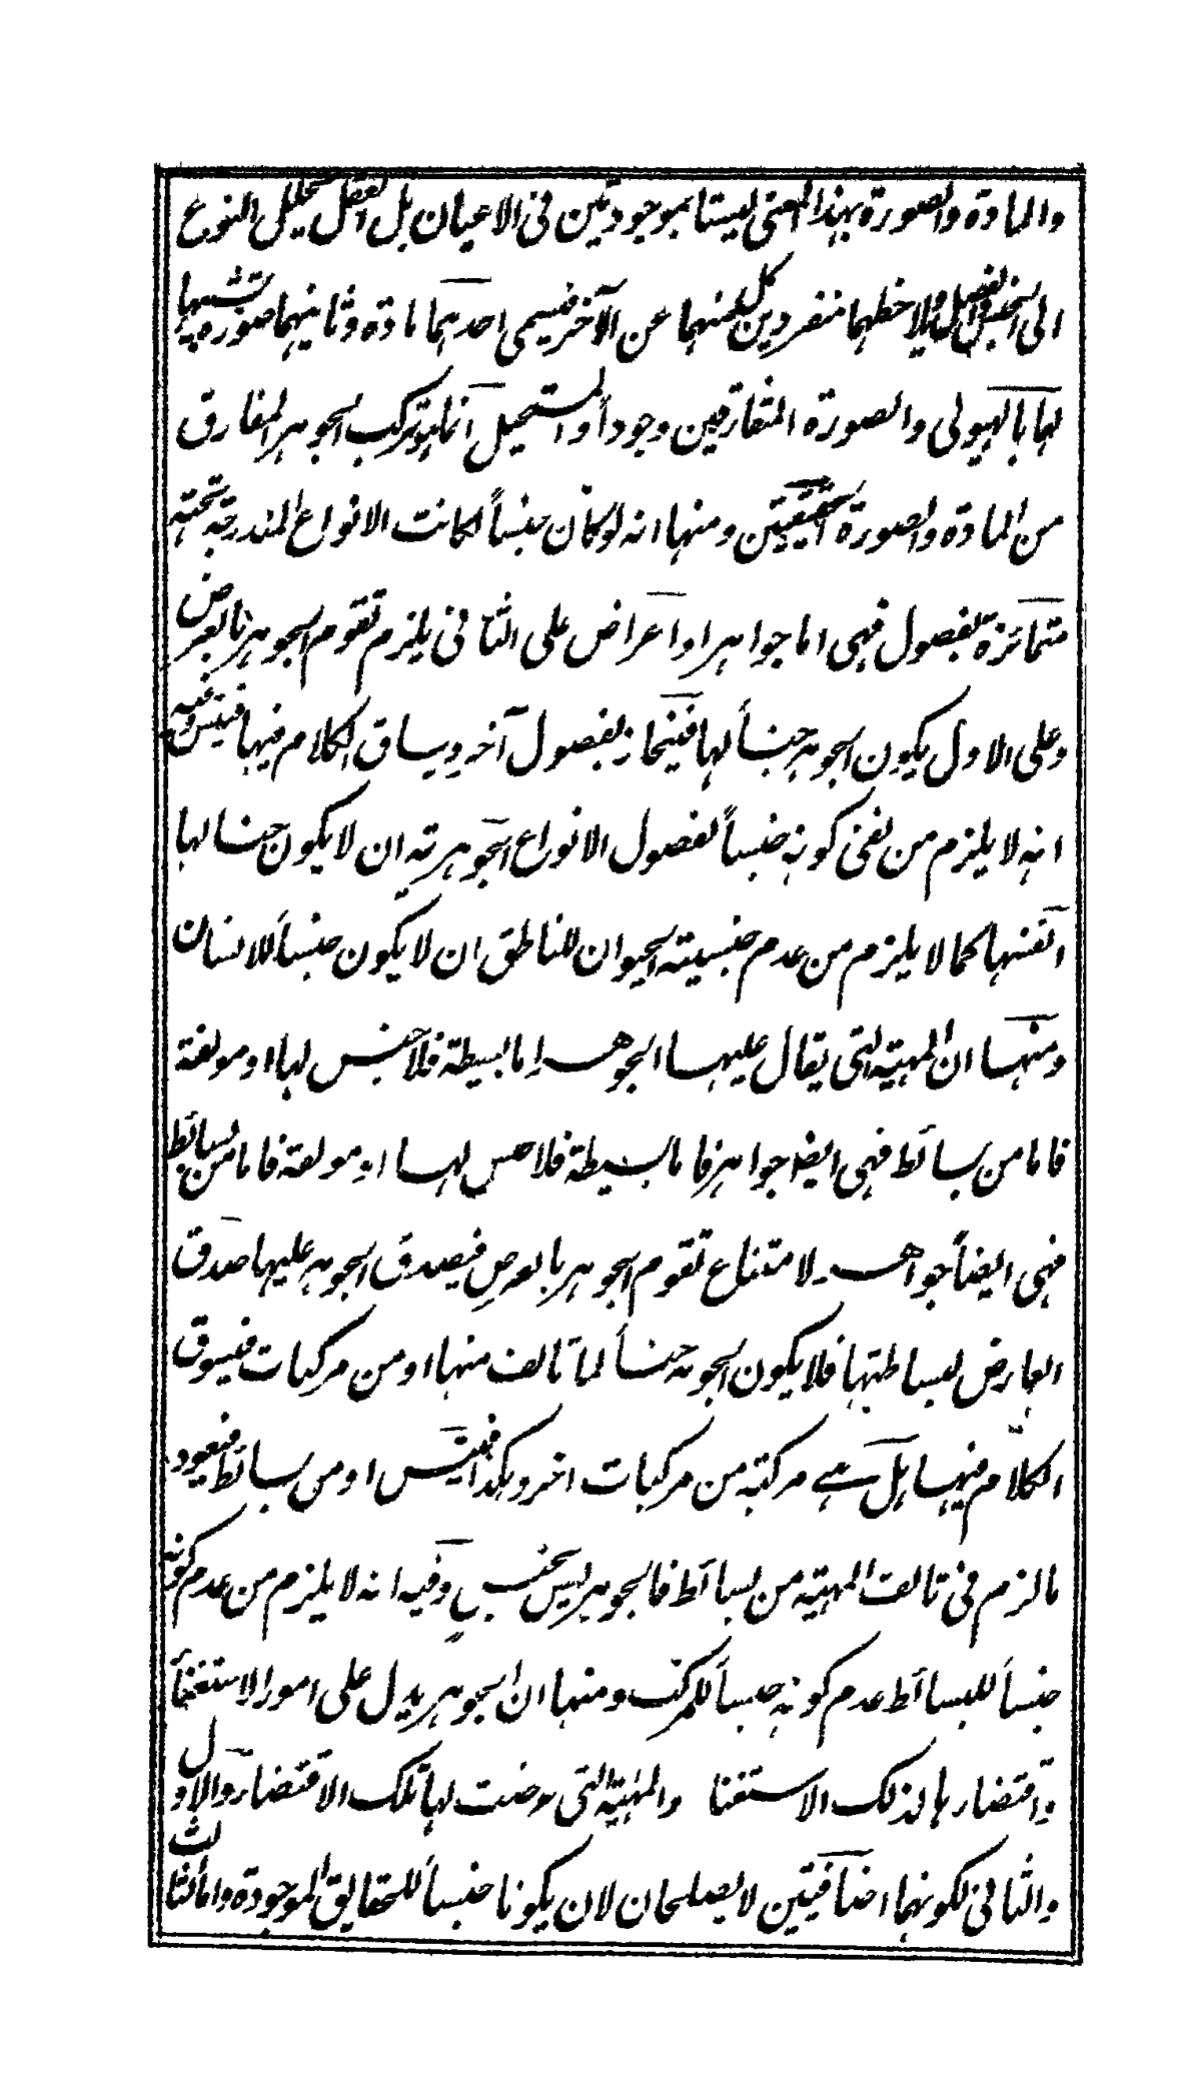 والمادة والصورة بهذا المعنى ليستا بموجودتين فى الاعيان بل العقل يحلل النوع
الى الجنس والفصل ويلاحظهما منفردين كل منهما عن الآخر فيسمى احدهما مادة وثانيهما صورة تشبيها
لها بالهيولى والصورة المتفارقين وجوداً والمستحيل انما هو تركب الجوهر المفارق
من المادة والصورة الحقيقيتين ومنها انه لو كان جنساً لكانت الانواع المندرجة تحته
متمائزة بفصول فهى اما جواهر او اعراض على الثانى يلزم تقوم الجوهر بالعرض
وعلى الاول يكون الجوهر جنساً لها فينحاز بفصول آخر ويساق الكلام فيها فيتس وفيه
انه لا يلزم من نفى كونه جنساً لفصول الانواع الجوهرية ان لا يكون جنسا لها
انفسها كما لا يلزم من عدم جنسية الحيوان للناطق ان لا يكون جنساً للانسان
ومنها ان المهية التى يقال عليها الجوهر اما بسيطة فلا جنس لها او مولفة
فاما من بسائط فهى ايضا جواهر فاما بسيطة فلا جنس لها او مولفة فاما من بسائط
فهى ايضاً جواهر لامتناع تقوم الجوهر بالعرض فيصدق الجوهر عليها صدق
العارض لبساطتها فلا يكون الجوهر جنساً لما تالف منها او من مركبات فيسوق
الكلام فيها هل هے مركبة من مركبات اخر وهكذا فيتس او من بسائط فيعود
ما لزم فى تالف المهية من بسائط فالجوهر ليس بجنس وفيه انه لا يلزم من عدم كونه
جنساً للبسائط عدم كونه جنساً للمركب ومنها ان الجوهر يدل على امور الاستغناء
واقتضارها لذلك الاستغنا والمهية التى عرضت لها تلك الاقتضاء والاول
والثانى لكونهما اضافيتين لا يصلحان لان يكونا جنساً للحقايق الموجودة واما الثالث